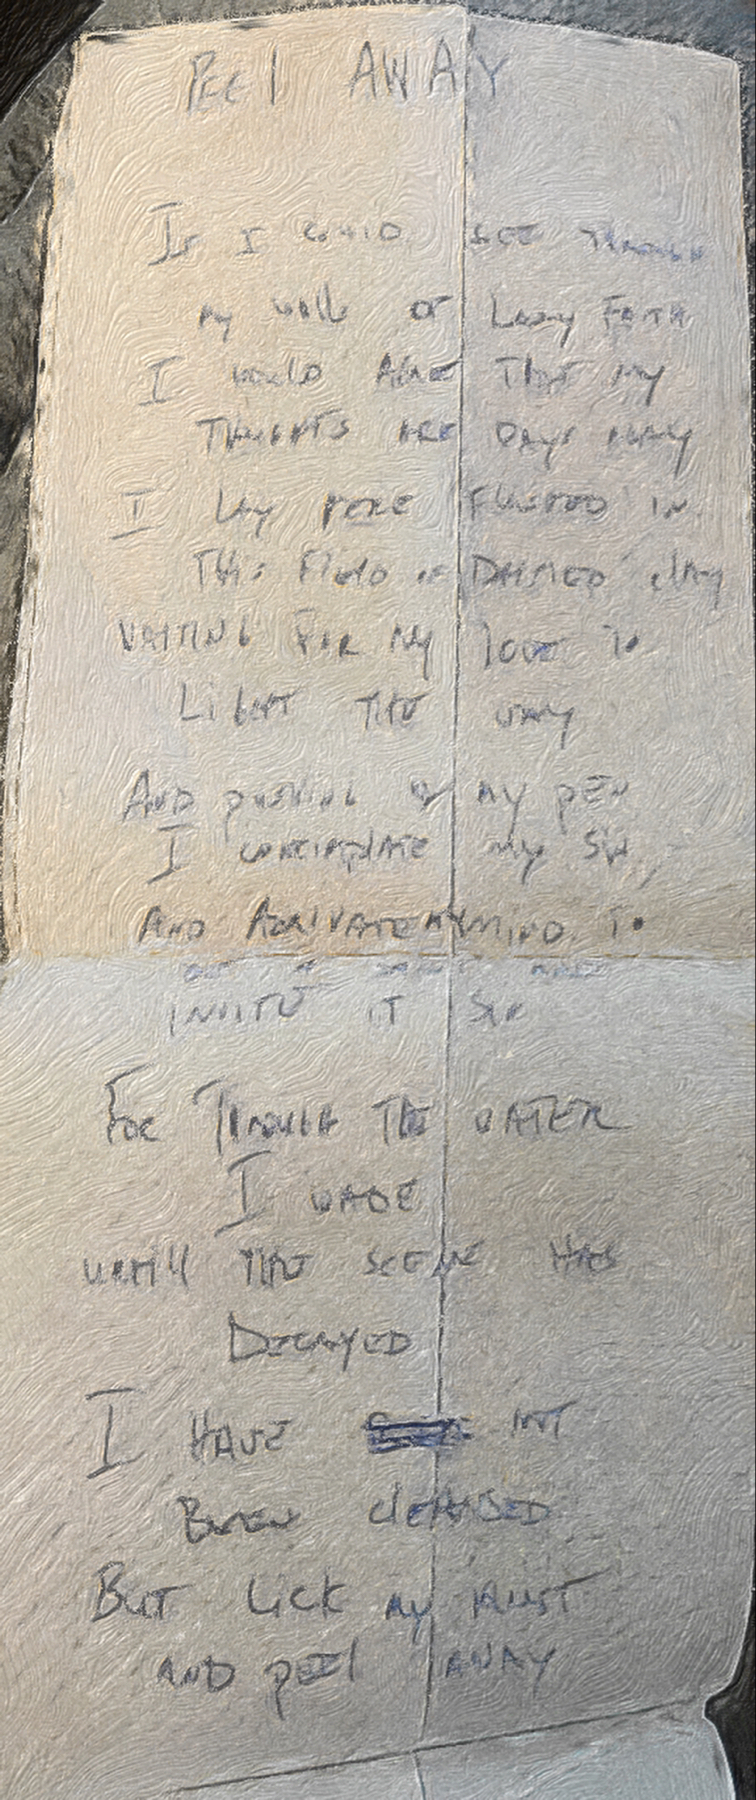 PEEl AWAY
If I could see through
my walls of Lazy Faith
I would that my
Thoughts are Days away
I lay here in
This Field of clay
WAITING FOR MY love To
LigHT THE way
AND pushing my pEN
I contemplate my Sin,
AND MY MIND TO
INVITE IT
For Through The WATER
I WADE
until THE SCENE HAS
DECAYED
I HAVE NOT
BEEN clEANSED
BUT LICK my
AND pEEl AWAY